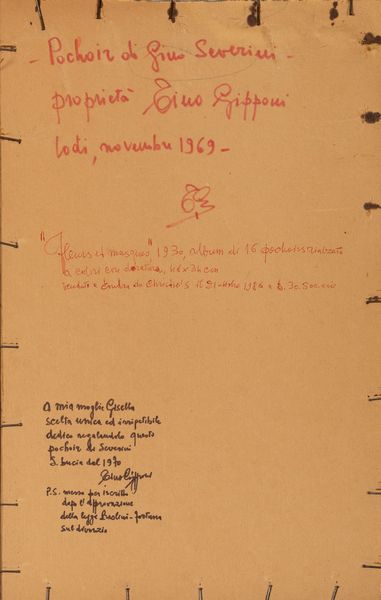 - Pochoir di Gino Severini -
proprietà Tino Gipponi
Lodi, novembre 1969 -
TG
"Fleurs et masques", 1930, album di 16 pochoirs realizzato
a colori con doratura, cm
venduto a Londra da Christie's il 1986 a
A mia moglie Gisella
scelta unica ed irripetibile
dedico regalandole questo
pochoir di Severini
S. Lucia del 1970
Tino Gipponi
P.S. messo per iscritto
dopo l'approvazione
della legge Baslini-Fortuna
sul divorzio